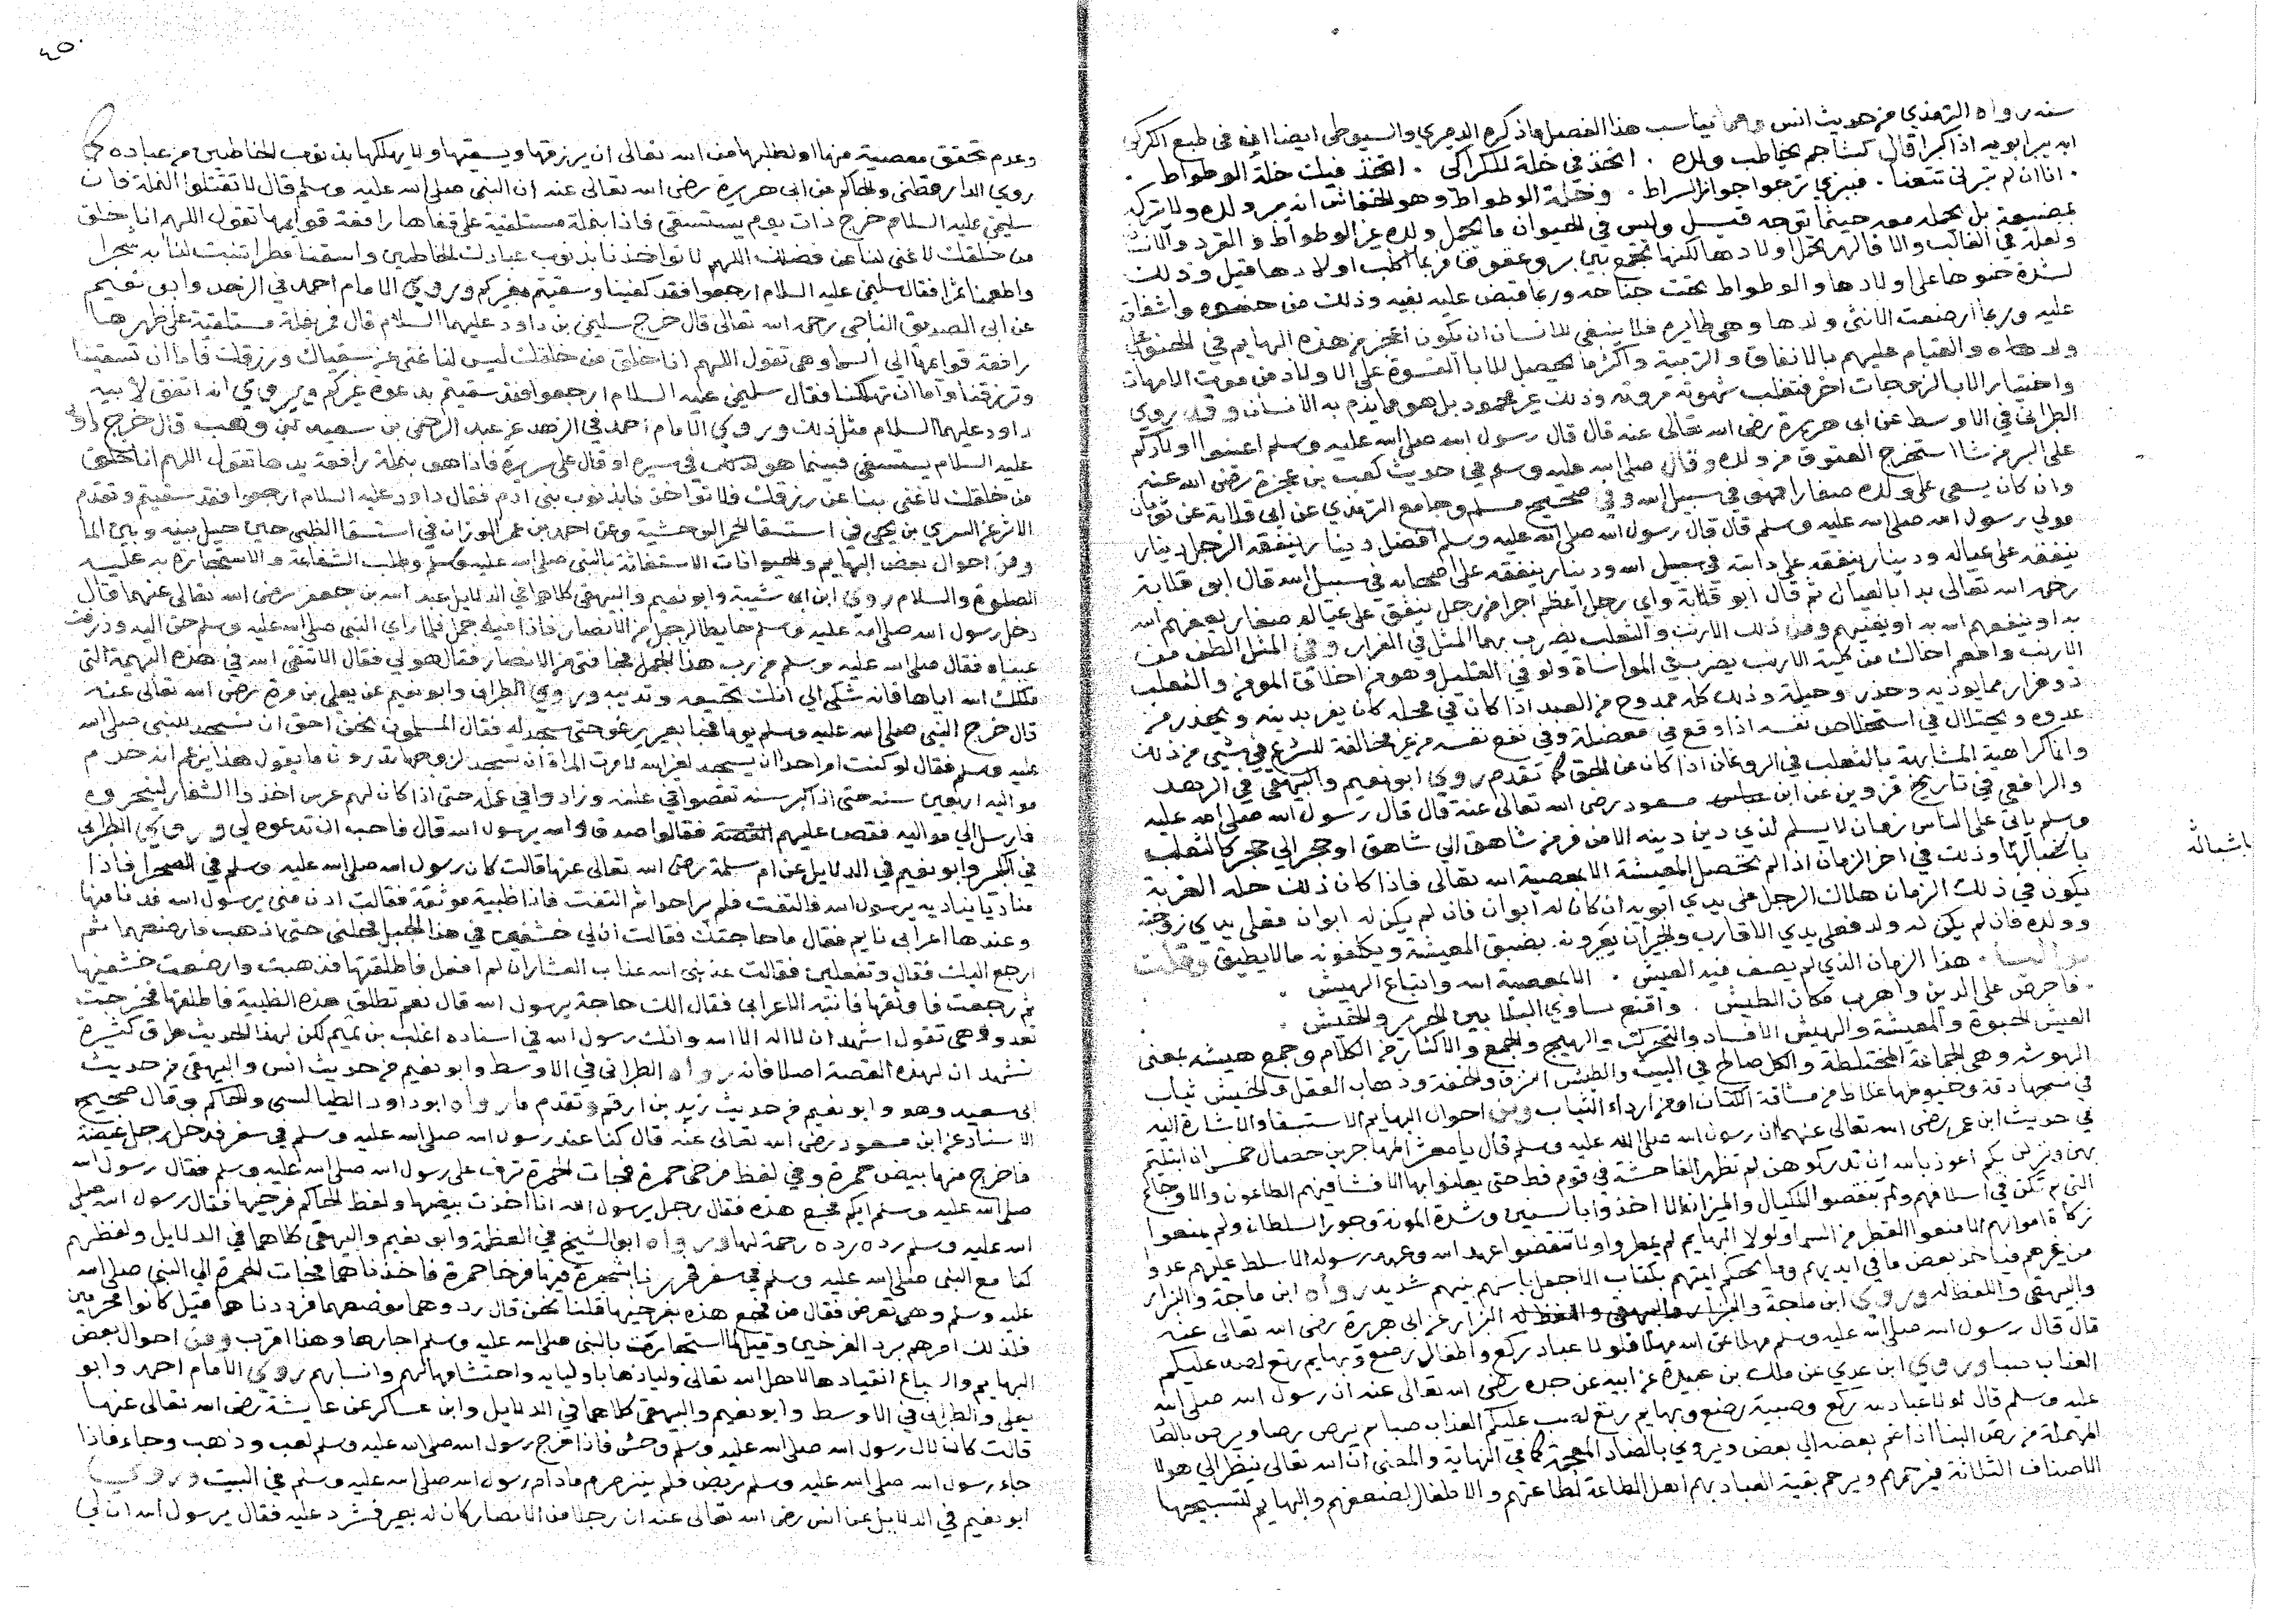 سنه رواه الترمذي من حديث انس ومما يناسب هذا الفصل ما ذكره الدميري والسيوطي ايضا انه في طبع الكركي
انه يبر ابويه اذا كبرا قال كشاجم يخاطب ولده . اتخذ في خلة للكراكي . اتخذ فيك خلة الوطواط .
. انا ان لم تبرني تتعنا . فببري ترجوا جواز السراط . وخلة الوطواط وهو الخفاش انه يبر ولده ولا يتركه
بمضيعة بل يحمله معه حيثما توجه قيل وليس في الحيوان ما يحمل ولده غير الوطواط والقرد والانسان
ولعله في الغالب والا فالهر يحمل اولادها لكنها بر وعقوق فربما اكلت اولادها قيل وذلك
لشدة حنوها على اولادها والوطواط تحت جناحه وربما قبض عليه بفيه وذلك من حنوه واشفاقه
عليه وربما ارضعت الانثى ولدها وهي طايره فلا ينبغي للانسان ان يكون اعجز من هذه البهايم في الحنو على
ولده والقيام عليهم بالانفاق والتربية واكثر ما يحصل للابا القسوة على الاولاد من موت الامهات
واختيار الاب الزوجات اخر فتغلب شهوته مروته وذلك غير محمود بل هو مما يذم به الانسان وقد روى
الطبراني في الاوسط عن ابي هريرة رضى الله تعالى عنه قال قال رسول الله صلى الله عليه وسلم اعينوا اولادكم
على البر من شا استخرج العقوق من ولده وقال صلى الله عليه وسلم في حديث كعب بن عجرة رضى الله عنه
وان كان يسعى على ولده صغارا فهو في سبيل الله وفي صحيح مسلم وجامع الترمذي عن ابي قلابة عن ثوبان
مولى رسول الله صلى الله عليه وسلم قال قال رسول الله صلى الله عليه وسلم افضل دينار ينفقه الرجل دينار
ينفقه على عياله ودينار ينفقه على دابته في سبيل الله ودينار ينفقه على اصحابه في سبيل الله قال ابو قلابة
رحمه الله تعالى بدا بالعيال ثم قال ابو قلابة واي رجل اعظم اجرا من رجل ينفق على عياله صغار يعفهم الله
به او ينفعهم الله به او يغنيهم ومن ذلك الارنب والثعلب يضرب بهما المثل في الفرار وفي المثل الطف من
الارنب واطعم اخاك من كلية الارنب يضرب في المواساة ولو في القليل وهو من اخلاق المومن والثعلب
ذو فرار مما يوذيه وحذر وحيلة وذلك كله ممدوح من العبد اذا كان في محله كان يفر بدينه ويحذر من
عدوه ويحتال في استخلاص نفسه اذا وقع في معضلة وفي نفع نفسه من غير مخالفة للشرع في شيى من ذلك
وانما كراهية المشابهة بالثعلب في الروغان اذا كان من الحق كما تقدم روى ابو نعيم والبيهقي في الزهد
والرافعي في تاريخ قزوين عن ابن مسعود رضى الله تعالى عنه قال قال رسول الله صلى الله عليه
وسلم ياتي على الناس زمان لا يسلم لذي دين دينه الا من فر من شاهق الى شاهق او حجر الى حجر كالثعلب
باشباله وذلك في اخر الزمان اذا لم تحصل المعيشة الا بمعصية الله تعالى فاذا كان ذلك حلت العزبة
باشباله
يكون في ذلك الزمان هلاك الرجل على يدي ابويه ان كان له ابوان فان لم يكن له ابوان فعلى يدي زوجته
وولده فان لم يكن له ولد فعلى يدي الاقارب والجيران يعيرونه بضيق المعيشة ويكلفونه ما لا يطيق وقلت
. هذا الزمان الذي لم يصف فيه العيش . الا بمعصية الله واتباع الهيش .
. فاحرص على الدين واهرب مكان الطيش . واقنع تساوي البلا بين الحرير والخيش .
العيش الحيوة والمعيشة والهيش الافساد والتحرك والهيج والجمع والاكثار من الكلام وجمع هيشه بمعنى
الهوشه وهي الجماعة المختلطة والكل صالح في البيت والطيش النزق والخفة وذهاب العقل والخيش ثياب
في نسجها دقة وخيوطها غلاظ من مشاقة الكتان او من ارداء الثياب ومن احوال البهايم الاستسقا والاشارة اليه
في حديث ابن عمر رضى الله تعالى عنهما ان رسول الله صلى الله عليه وسلم قال يا معشر المهاجرين خصال خمس ان ابتليتم
بهن ونزلن بكم اعوذ بالله ان تدركوهن لم تظهر الفاحشة في قوم قط حتى يعلنوا بها الا فشا فيهم الطاعون والاوجاع
التي لم تكن في اسلافهم ولم ينقصوا المكيال والميزان الا اخذوا بالسنين وشدة المونة وجور السلطان ولم يمنعوا
زكاة اموالهم الا منعوا القطر من السما ولولا البهايم لم يمطروا ولا نقضوا عهد الله وعهد رسوله الا سلط عليهم عدوا
من غيرهم فياخذ بعض ما في ايديهم وما لم يحكم ايمتهم بكتاب الله الا جعل باسهم بينهم شديد رواه ابن ماجة والبزار
والبيهقي واللفظ له وروى ابن ماجة والبزار والبيهقي واللفظ له البزار عن ابي هريرة رضى الله تعالى عنه
قال قال رسول الله صلى الله عليه وسلم مهلا عن الله مهلا فلولا عباد ركع واطفال رضع وبهايم رتع لصب عليكم
العذاب صبا وروى ابن عدي عن ملك بن عبيدة عن ابيه عن جده رضى الله تعالى عنه ان رسول الله صلى الله
عليه وسلم قال لولا عباد لله ركع وصبية رضع وبهايم رتع لصب عليكم العذاب صبا ثم يرص رصا ويرص بالصاد
المهملة من رص البنا اذا ضم بعضه الى بعض ويروى بالضاد المعجمة كما في النهاية والمعنى ان الله تعالى ينظر الى هولا
الاصناف الثلاثة فيرحمهم ويرحم بقية العباد بهم اهل الطاعة لطاعتهم والاطفال لضعفهم والبهايم لتسبيحها
وعدم تحقق معصية منها او لطلبها من الله تعالى ان يرزقها ويسقيها ولا يهلكها بذنوب الخاطيين من عباده كما
روى الدارقطني والحاكم عن ابي هريرة رضى الله تعالى عنه ان النبي صلى الله عليه وسلم قال لا تقتلوا النملة فان
سليمن عليه السلام خرج ذات يوم يستسقي فاذا بنملة مستلقية على قفاها رافعة قوايمها تقول اللهم انا خلق
من خلقك لا غنى لنا عن فضلك اللهم لا تواخذنا بذنوب عبادك الخاطيين واسقنا مطرا تنبت لنا به شجرا
واطعمنا ثمرا فقال سليمن عليه السلام ارجعوا فقد كفينا وسقيتم بغيركم وروى الامام احمد في الزهد وابو نعيم
عن ابي الصديق الناجي رحمه الله تعالى قال خرج سليمن بن داود عليهما السلام قال فمر بنملة مستلقية على ظهرها
رافعة قوايمها الى السما وهي تقول اللهم انا خلق من خلقك ليس لنا غنى عن سقياك ورزقك فاما ان تسقينا
وترزقنا واما ان تهلكنا فقال سليمن عليه السلام ارجعوا فقد سقيتم بدعوة غيركم وروى انه اتفق لابيه
داود عليهما السلام مثل ذلك وروى الامام احمد في الزهد عن عبد الرحمن بن سعيد بن وهب قال خرج داود
عليه السلام يستسقي فبينما هو كذلك في سيره او قال على سريره فاذا هو بنملة رافعة يدها تقول اللهم انا خلق
من خلقك لا غنى بنا عن رزقك فلا تواخذنا بذنوب بني ادم فقال داود عليه السلام ارجعوا فقد سقيتم وتقدم
الاثر عن السري بن يحيى في استسقا الحمر الوحشية وعن احمد بن عمر الوزان في استسقا الظبي حين حيل بينه وبين الما
ومن احوال بعض البهايم والحيوانات الاستغاثة بالنبي صلى الله عليه وسلم وطلب الشفاعة والاستجارة به عليه
الصلوة والسلام روى ابن ابي شيبة وابو نعيم والبيهقي كلاهما في الدلايل عبد الله بن جعفر رضى الله تعالى عنهما قال
دخل رسول الله صلى الله عليه وسلم حايطا لرجل من الانصار فاذا فيه جمل فلما راى النبي صلى الله عليه وسلم حن اليه وذرفت
عيناه فقال صلى الله عليه وسلم من رب هذا الجمل فجا فتى من الانصار فقال هو لي فقال الا تتقى الله في هذه البهيمة التي
ملكك الله اياها فانه شكى الي انك تجيعه وتديبه وروى الطبراني وابو نعيم عن يعلى بن مرة رضى الله تعالى عنه
قال خرج النبي صلى الله عليه وسلم يوما فجا بعير يرغو حتى سجد له فقال المسلمون نحن احق ان نسجد للنبي صلى الله
عليه وسلم فقال لو كنت امر احدا ان يسجد لغير الله لامرت المراة ان تسجد لزوجها تدرون ما يقول هذا يزعم انه خدم
مواليه اربعين سنه حتى اذا كبر سنه نقصوا في علفه وزادوا في عمله حتى اذا كان لهم عرس اخذوا الشفار لينحروه
فارسل الى مواليه فقص عليهم القصة فقالوا صدق والله يرسول الله قال فاحب ان تدعوه لي وروى الطبراني
في الكبير وابو نعيم في الدلايل عن ام سلمة رضى الله تعالى عنها قالت كان رسول الله صلى الله عليه وسلم في الصحرا فاذا
مناديا يناديه يرسول الله فالتفت فلم ير احدا ثم التفت فاذا ظبية موثقة فقالت ادن منى يرسول الله فدنا منها
وعندها اعرابي نايم فقال ما حاجتك فقالت ان لي خشفين في هذا الجبل فحلنى حتى اذهب فارضعهما ثم
ارجع اليك فقال وتفعلين فقالت عذبنى الله عذاب العشار ان لم افعل فاطلقها فذهبت وارضعت خشفيها
ثم رجعت فاوثقها فانتبه الاعرابي فقال الك حاجة يرسول الله قال نعم تطلق هذه الظبية فاطلقها فخرجت
تعدو وهي تقول اشهد ان لا اله الا الله وانك رسول الله في اسناده اغلب بن تميم لكن لهذا الحديث طرق كثيرة
تشهد ان لهذه القصة اصلا فانه رواه الطبراني في الاوسط وابو نعيم من حديث انس والبيهقي من حديث
ابي سعيد وهو وابو نعيم من حديث زيد بن ارقم وتقدم ما رواه ابو داود الطيالسي والحاكم وقال صحيح
الاسناد عن ابن مسعود رضى الله تعالى عنه قال كنا عند رسول الله صلى الله عليه وسلم في سفر فدخل رجل غيضة
فاخرج منها بيض حمرة وفي لفظ فرخى حمرة فجات الحمرة ترف على رسول الله صلى الله عليه وسلم فقال رسول الله
صلى الله عليه وسلم ايكم فجع هذه فقال رجل يرسول الله انا اخذت بيضها ولفظ الحاكم فرخيها فقال رسول الله صلى
الله عليه وسلم رده رده رحمة لها ورواه ابو الشيخ في العظمة وابو نعيم والبيهقي كلاهما في الدلايل ولفظهم
كنا مع النبي صلى الله عليه وسلم في سفر فمررنا بشجرة فيها فرخا حمرة فاخذناهما فجات الحمرة الى النبي صلى الله
عليه وسلم وهي تعرض فقال من فجع هذه بفرخيها قلنا نحن قال ردوهما موضعهما فرددناهما قيل كانوا محرمين
فلذلك امرهم برد الفرخين وقيل لما استجارت بالنبي صلى الله عليه وسلم اجارها وهذا اقرب ومن احوال بعض
البهايم والسباع انقيادها لاهل الله تعالى ولياذها باوليايه واحتشامها لهم وانسا بهم روى الامام احمد وابو
يعلى والطبراني في الاوسط وابو نعيم والبيهقي كلاهما في الدلايل وابن عساكر عن عايشة رضى الله تعالى عنها
قالت كان لال رسول الله صلى الله عليه وسلم وحش فاذا خرج رسول الله صلى الله عليه وسلم لعب وذهب وجاء فاذا
جاء رسول الله صلى الله عليه وسلم ربض فلم يترمرم ما دام رسول الله صلى الله عليه وسلم في البيت وروى
ابو نعيم في الدلايل عن انس رضى الله تعالى عنه ان رجلا من الانصار كان له بعير فشرد عليه فقال يرسول الله ان لي